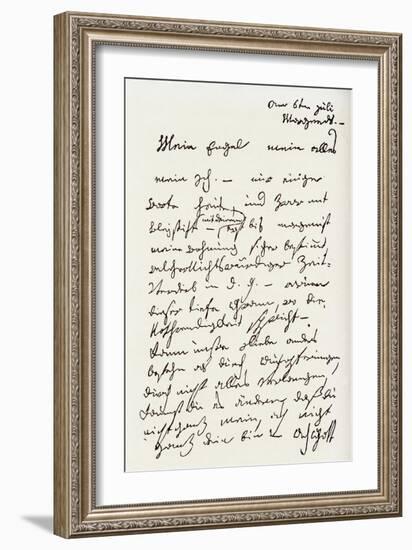 am 6ten Juli
Morgends. –
Mein Engel mein alles
mein Ich. – nur einige
Worte heute, und zwar mit
Bleystift – (mit deinem)
erst bis morgen ist
meine Wohnung sicher bestimt,
welcher Nichtswürdiger Zeit-
Verderb in d. g. – warum
dieser tiefe Gram, wo die
Nothwendigkeit spricht –
Kann unsre Liebe anders
bestehn als durch Aufopferungen,
durch nicht alles verlangen,
kannst du es ändern, daß du
nicht ganz mein, ich nicht
ganz dein bin – Ach Gott